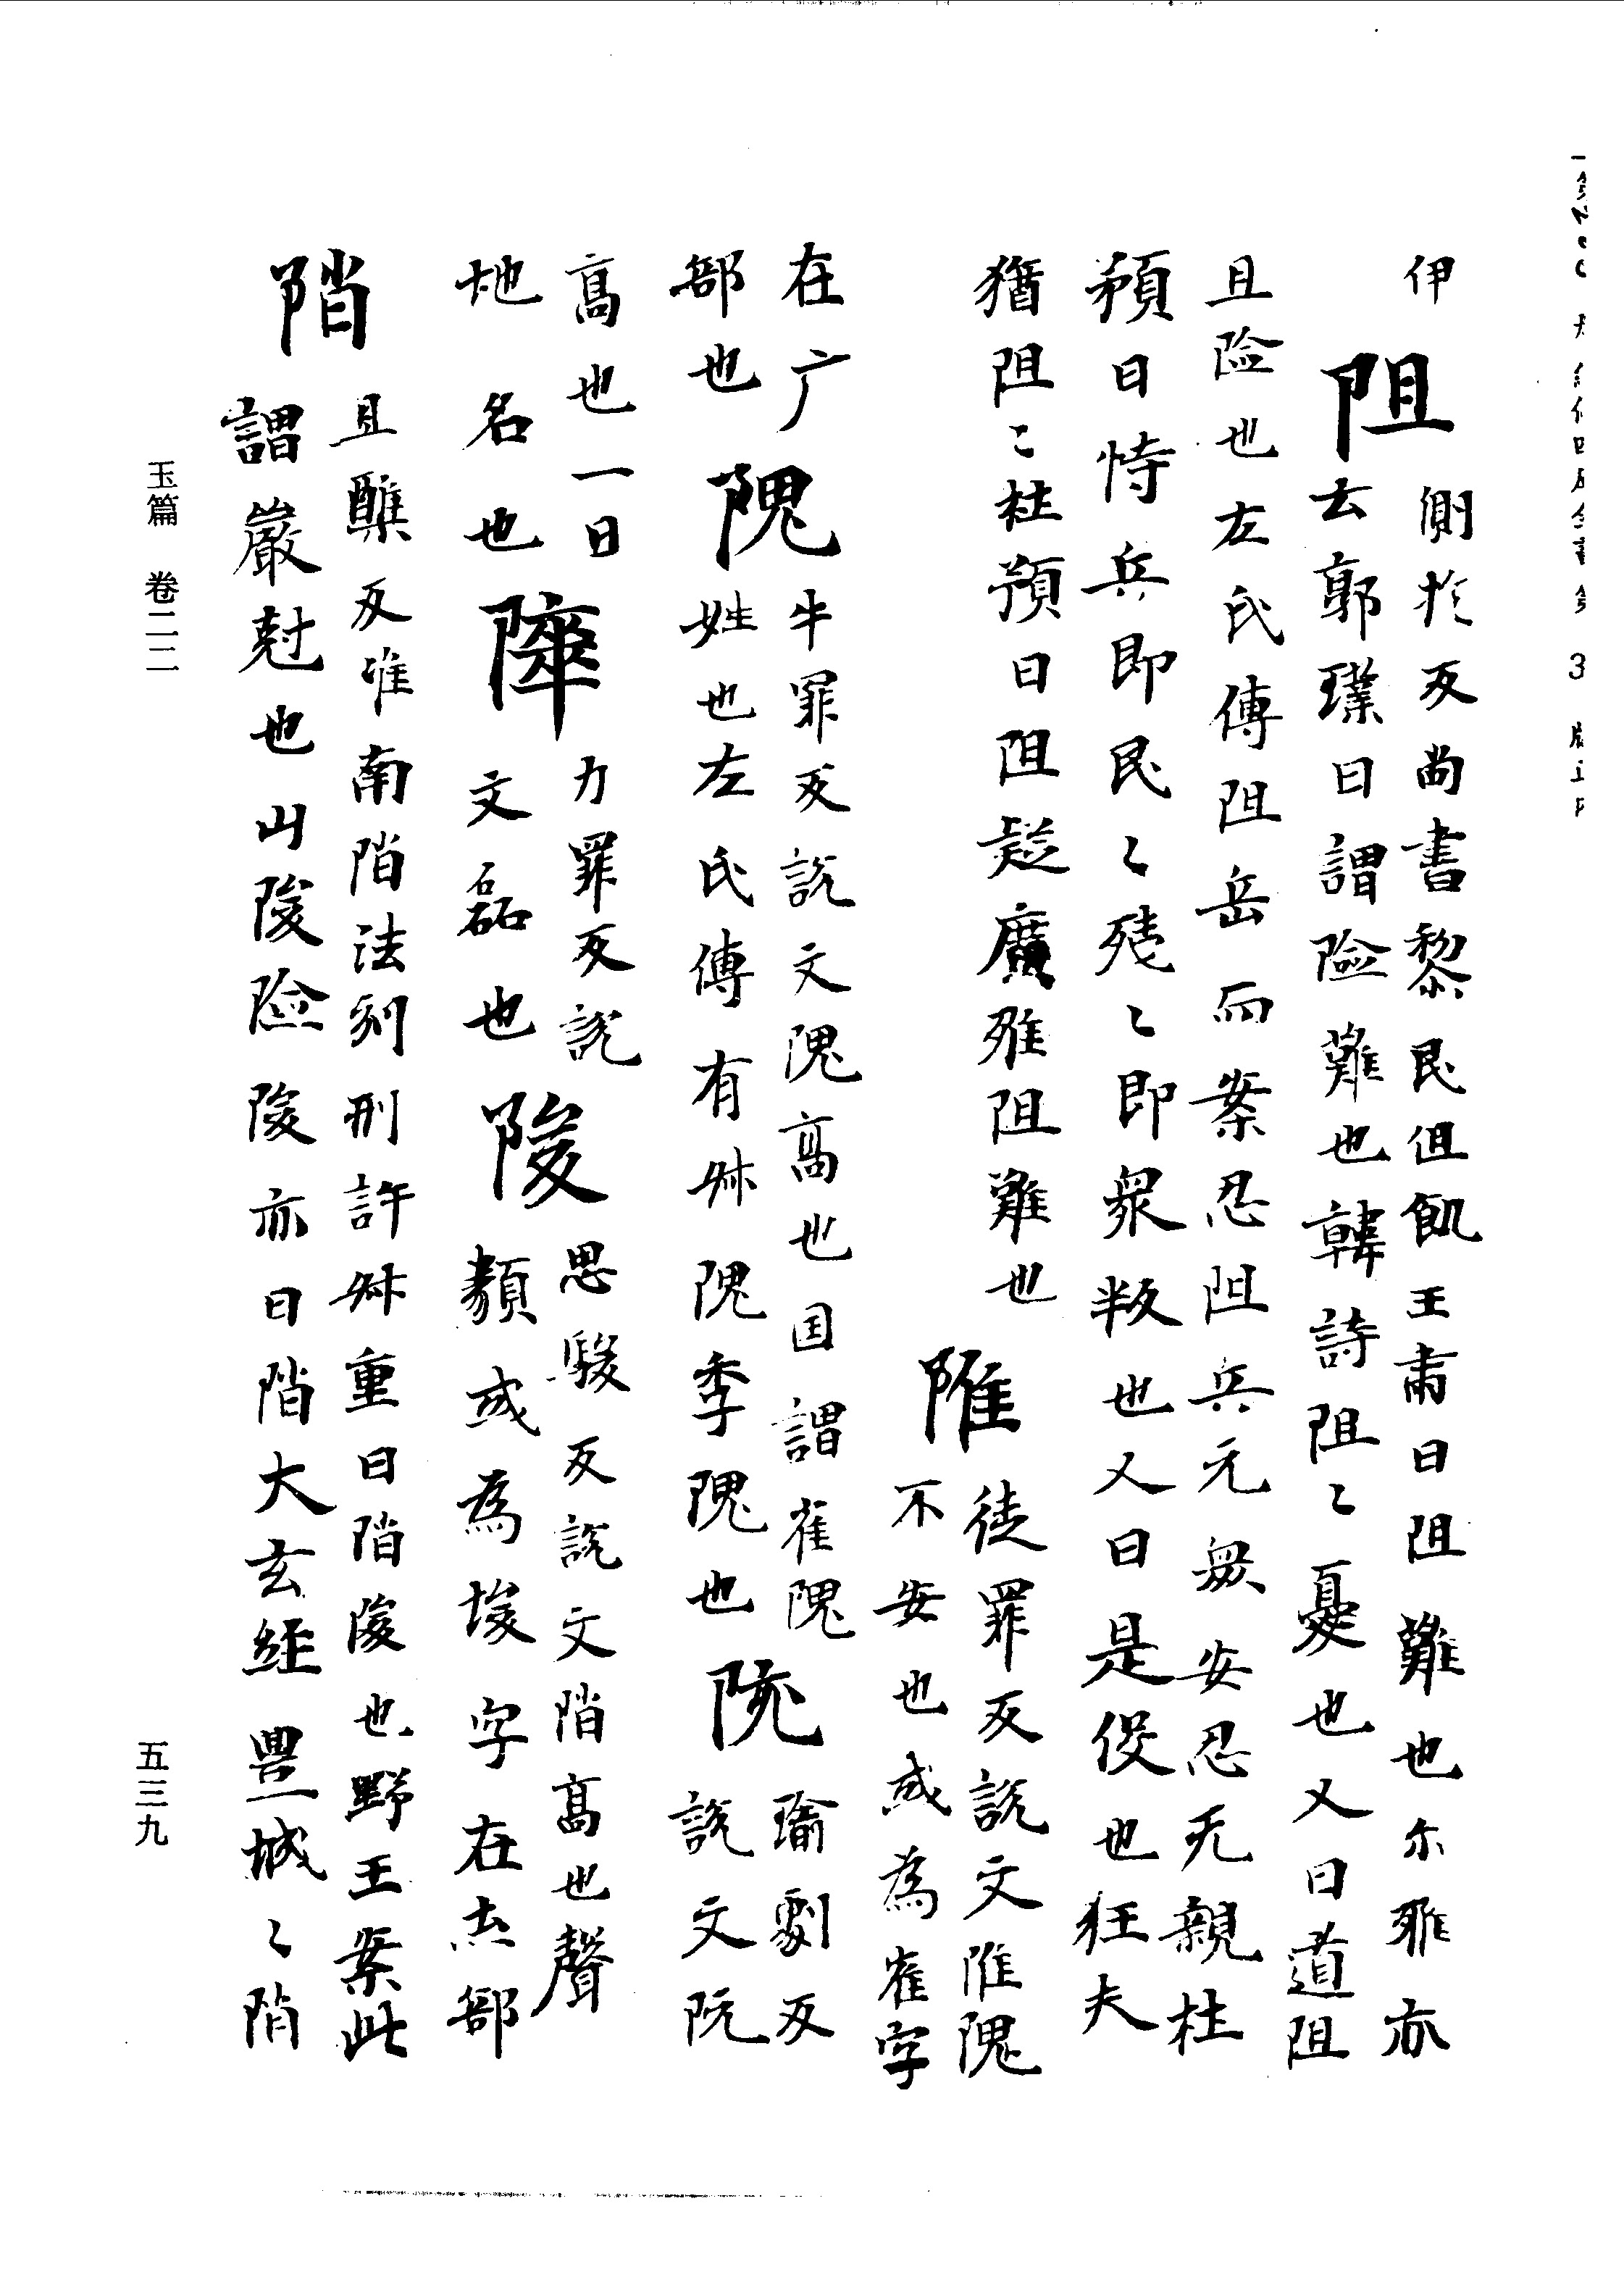 伊
阻
側於反尚書黎民俎飢王肅曰阻難也尒雅亦
云郭璞曰謂險難也韓詩阻〻憂也又曰道阻
且險也左氏傳阻岳而案忍阻兵无衆安忍无親杜
預曰恃兵即民〻殘〻即衆叛也又曰是伇也狂夫
猶阻〻杜預曰阻疑廣雅阻難也
陮
徒罪反説文陮隗
不安也或為崔字
在广
部也
隗
牛罪反説文隗高也囯謂崔隗
姓也左氏傳有叔隗季隗也
阮
瑜劇反
説文阮
高也一曰
地名也
力罪反説
文磊也
陖
思駿反説文陗高也聲
類或為埈字在土部
陗
且醮反淮南陗法刻刑許叔重曰陗陖也野王案此
謂嚴尅也山陖險陖亦曰陗大玄経豐城〻陗
玉篇 卷二二
五三九